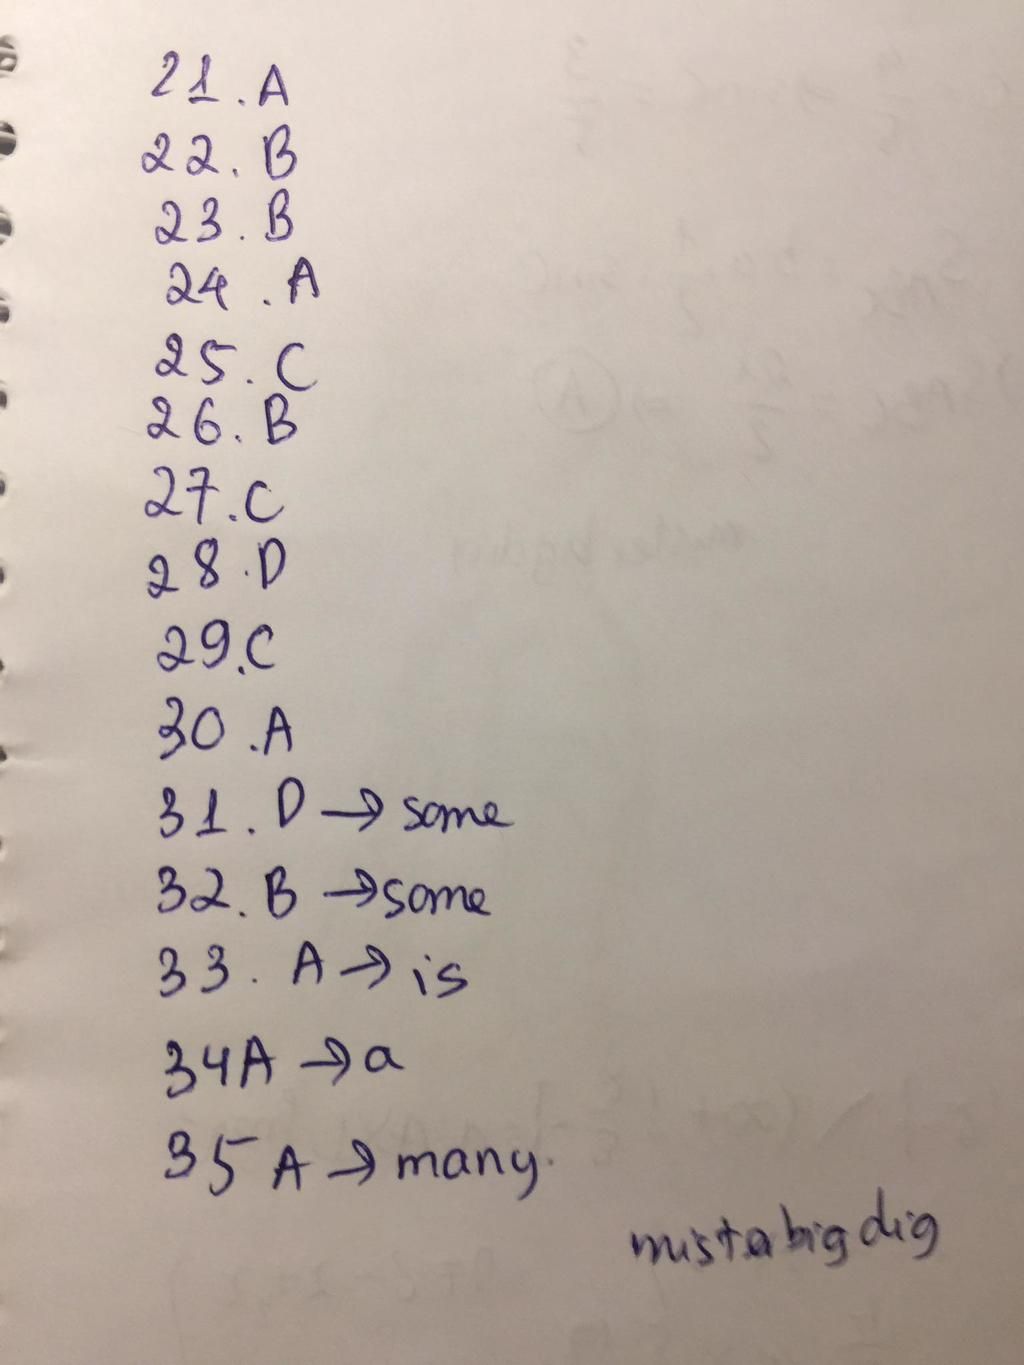 21. A
22. B
23. B
24. A
25. C
26. B
27. C
28. D
29. C
30. A
31. D → some
32. B → some
33. A → is
34A → a
35 A → many.
mistabigdig